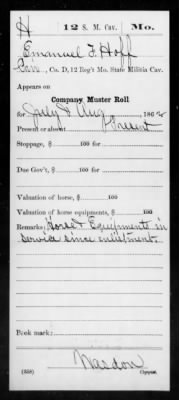 H 12 S. M. Cav. Mo.
Emanuel F. Hoff
Priv., Co. D, 12 Reg't Mo. State Militia Cav.
Appears on
Company Muster Roll
for July & Aug, 1862
Present or absent Present
Stoppage, $ 100 for
Due Gov't, $ 100 for
Valuation of horse, $ 100
Valuation of horse equipments, $ 100
Remarks: Horse & Equipments in
service since enlistment.
Book mark:
(358) Copyist.